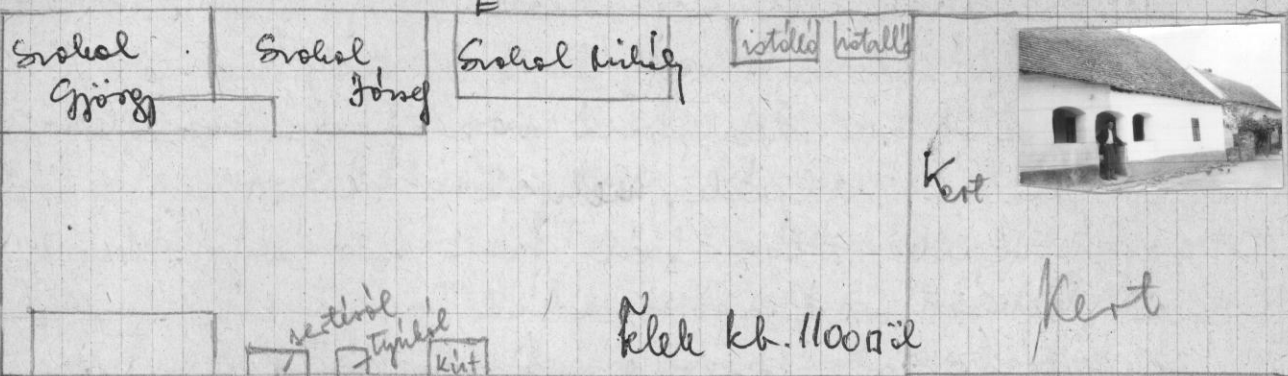 É
Szokol
György
Szokol
József
Szokol Mihály
istálló
istálló
Kert
Kert
sertésól
tyúkól
kút
Telek kb. 1100□öl